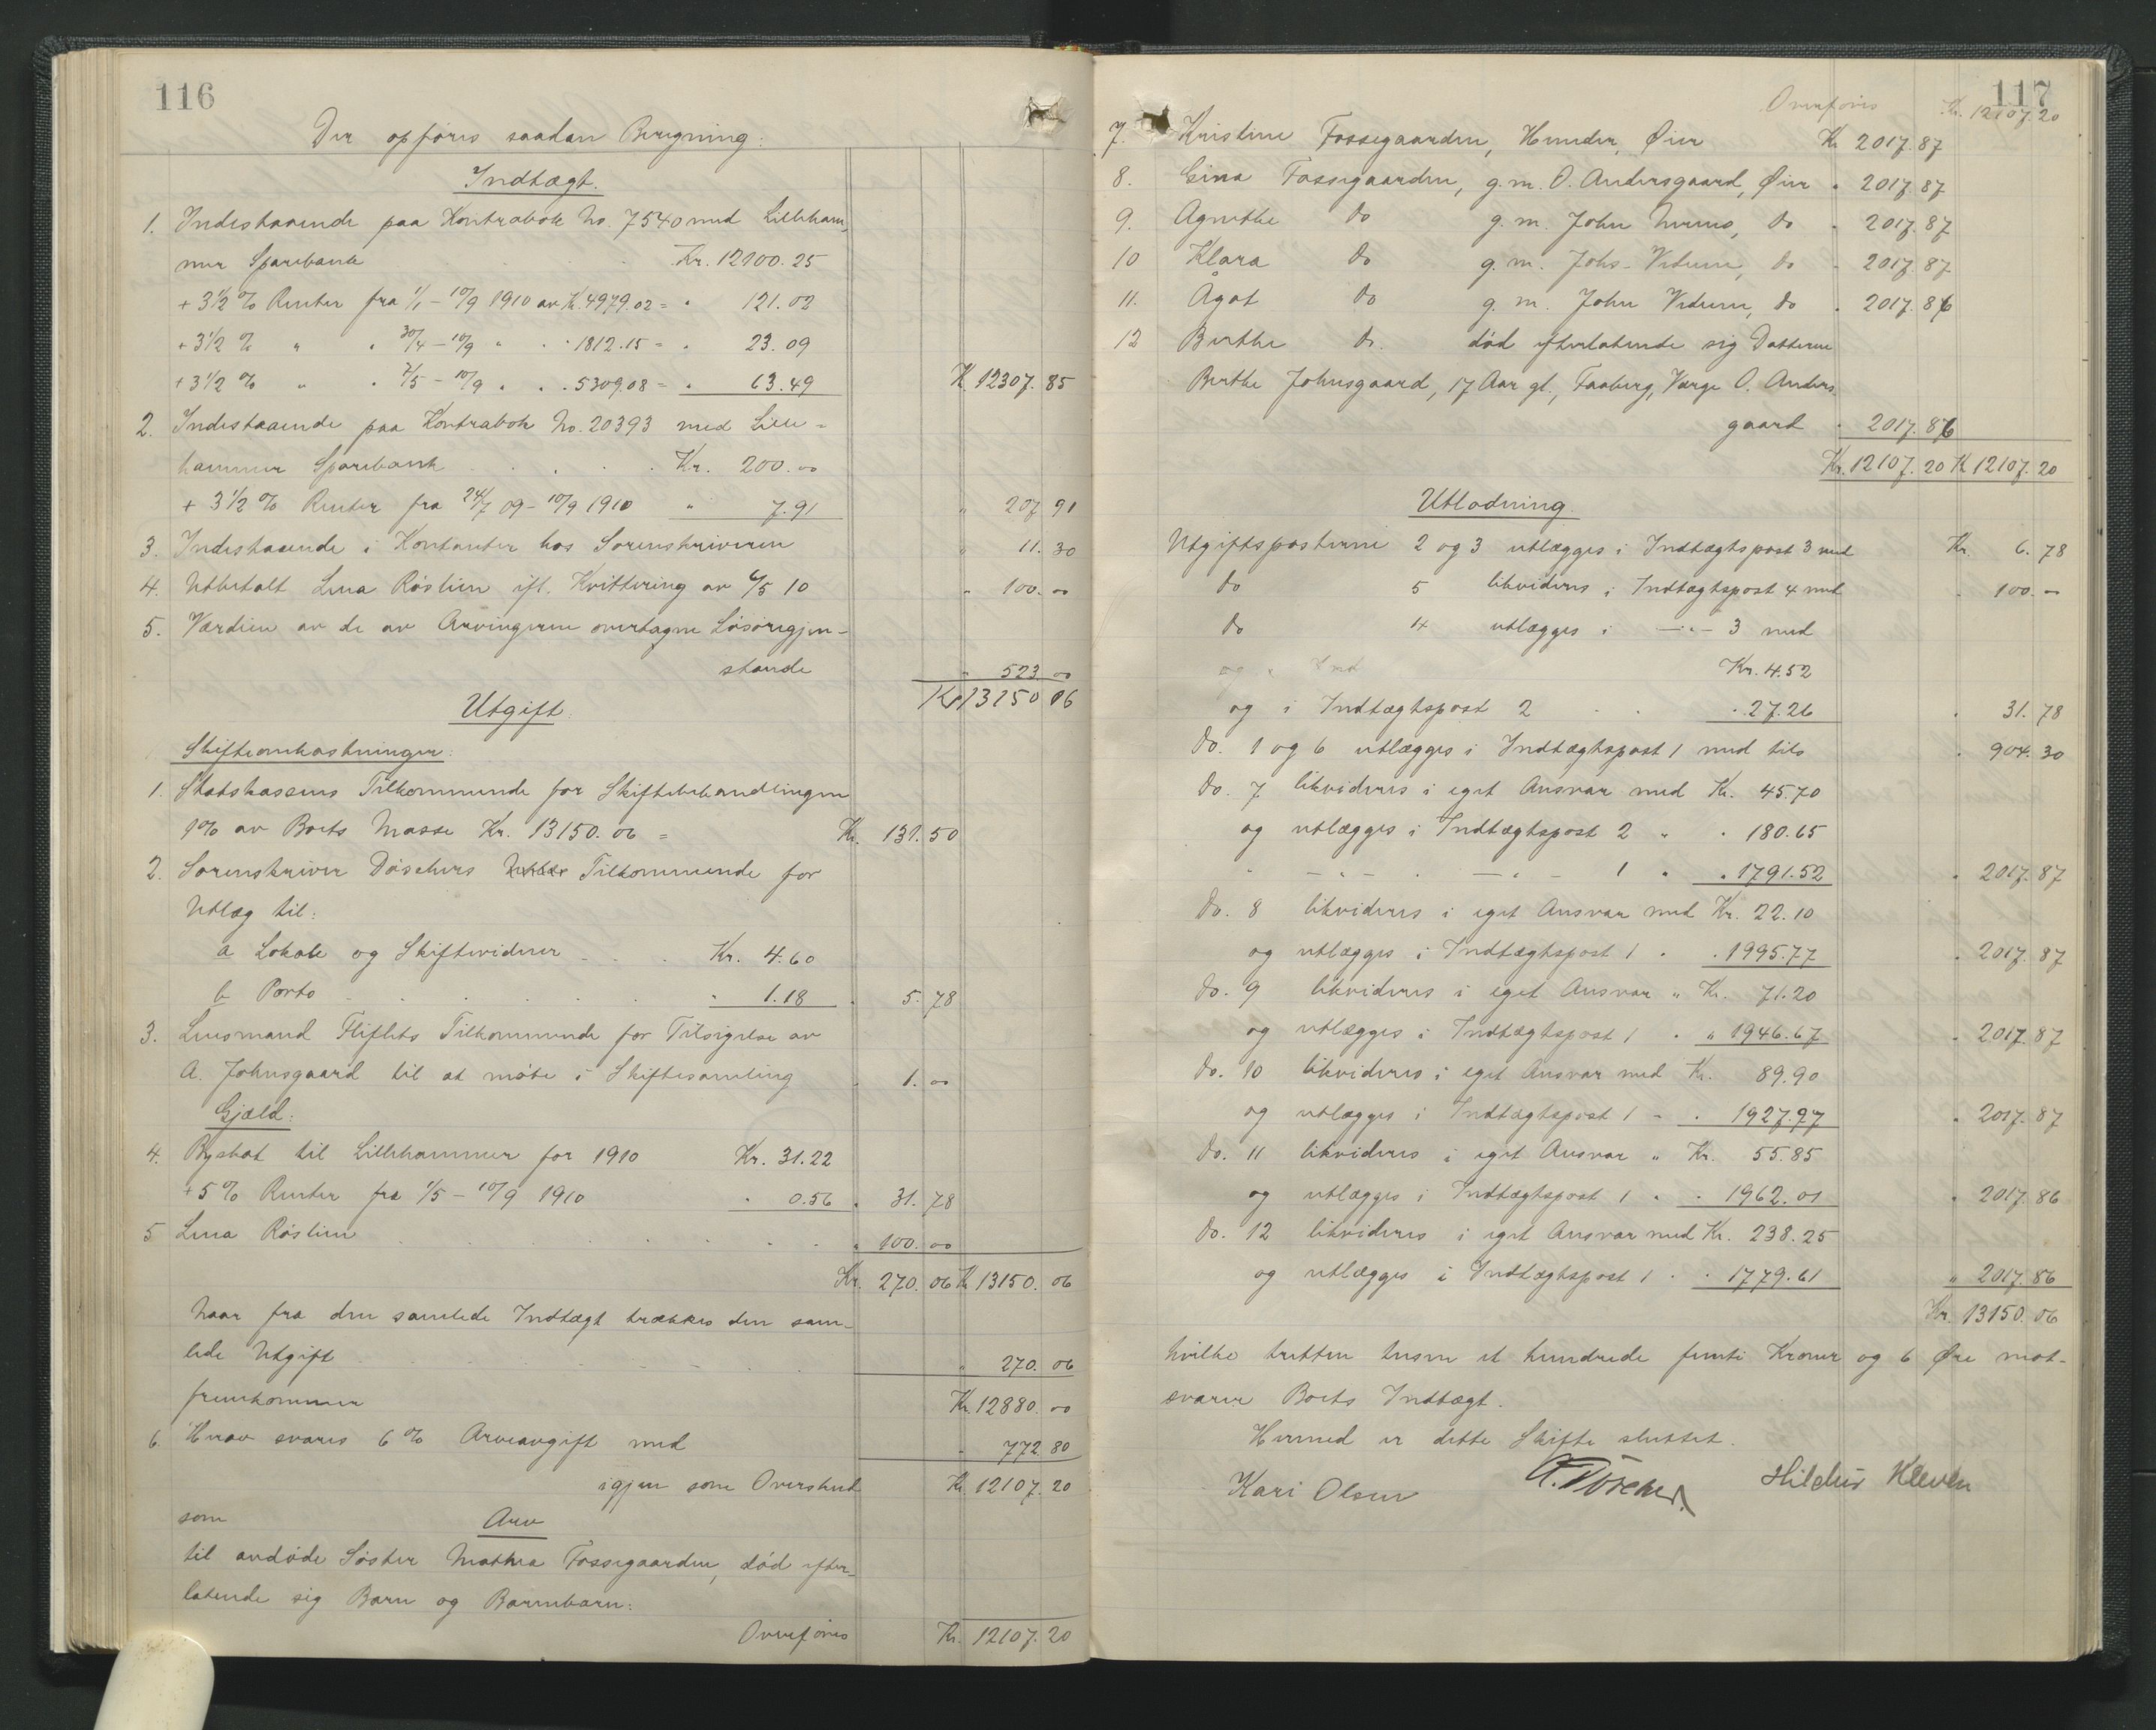 116
Der opføres saadan Beregning:
Indtægt.
1. Indestaaende paa Kontrabok No. 7540 med Lilleham,
mer Sparebank Kr. 12100.25
+ 3 1/2 % Renter fra 1/1 - 10/9 1910 av Kr. 4979.02 = " 121.02
+ 3 1/2 % " " 30/4 - 10/9 " " " 1812.15 = " 23.09
+ 3 1/2 % " " 7/5 - 10/9 " " " 5309.08 = " 63.49 K 12307.85
2. Indestaaende paa Kontrabok No. 20393 med Lille-
hammer Sparebank Kr. 200.00
+ 3 1/2 % Renter fra 24/7 09 - 10/9 1910 " 7.91 " 207.91
3. Indestaaende i Kontanter hos Sorenskriveren " 11.30
4. Utbetalt Lina Røslien ifl. Kvittering av 6/5 10 " 100.00
5. Værdien av de av Arvingerne overtagne Løsøregjen-
stande " 523.00
Kr 13150 06
Utgift.
Skifteomkostninger:
1. Statskassens Tilkommende for Skiftebehandlingen
1% av Boets Masse Kr. 13150.06 = Kr. 131.50
2. Sorenskriver Döschers Tilkommende for
Utlæg til:
a Lokale og Skiftevidner Kr. 4.60
b Porto " 1.18 " 5.78
3. Lensmand Fliflets Tilkommende for Tilsigelse av
A. Johnsgaard til at møte i Skiftesamling " 1.00
Gjæld:
4. Byskat til Lillehammer for 1910 Kr. 31.22
+ 5% Renter fra 1/5 - 10/9 1910 " 0.56 " 31.78
5 Lina Røslien " 100.00
Kr. 270.06 K 13150.06
Naar fra den samlede Indtægt trækkes den sam-
lede Utgift " 270.06
fremkommer Kr. 12880.00
6. Herav svares 6% Arveavgift med " 772.80
igjen som Overskud Kr. 12107.20
som Arv
til avdøde Søster Mathea Fossegaarden, død efter-
latende sig Barn og Barnebarn:
Overføres Kr. 12107.20
117
Overføres Kr. 12107.20
7. Kristine Fossegaarden, Hunder, Øier Kr 2017.87
8. Gina Fossegaarden, g.m. O. Andersgaard, Øier " 2017.87
9. Agnethe do g.m. John Nerme, do " 2017.87
10 Klara do g.m. Johs. Vedum, do " 2017.87
11. Ågot do g.m. John Vedum, do " 2017.86
12 Berthe do. død efterlatende sig Datteren
Berthe Johnsgaard, 17 Aar gl., Faaberg, Værge O. Anders-
gaard " 2017.86
Kr. 12107.20 K 12107.20
Utlodning.
Utgiftsposterne 2 og 3 utlægges i Indtægtspost 3 med Kr. 6.78
do 5 likvideres i Indtægtspost 4 med " 100.00
do 4 utlægges i —"— 3 med
Kr. 4.52
og i Indtægtspost 2 " 27.26 " 31.78
do. 1 og 6 utlægges i Indtægtspost 1 med tils " 904.30
do. 7 likvideres i eget Ansvar med Kr. 45.70
og utlægges i Indtægtspost 2 " " 180.65
" —"— " —"— 1 " " 1791.52 " 2017.87
do. 8 likvideres i eget Ansvar med Kr. 22.10
og utlægges i Indtægtspost 1 " " 1995.77 " 2017.87
do. 9 likvideres i eget Ansvar " Kr. 71.20
og utlægges i Indtægtspost 1 " " 1946.67 " 2017.87
do. 10 likvideres i eget Ansvar med Kr. 89.90
og utlægges i Indtægtspost 1 - " 1927.97 " 2017.87
do. 11 likvideres i eget Ansvar " Kr. 55.85
og utlægges i Indtægtspost 1 " " 1962.01 " 2017.86
do. 12 likvideres i eget Ansvar med Kr. 238.25
og utlægges i Indtægtspost 1 " " 1779.61 " 2017.86
Kr. 13150.06
hvilke tretten tusen et hundrede femti Kroner og 6 Øre mot-
svarer Boets Indtægt.
Hermed er dette Skifte sluttet.
Kari Olsen A. Döscher. Hildur Kleven